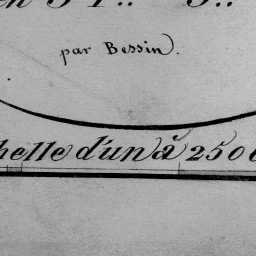 par Bessin.
helle d'un à 250